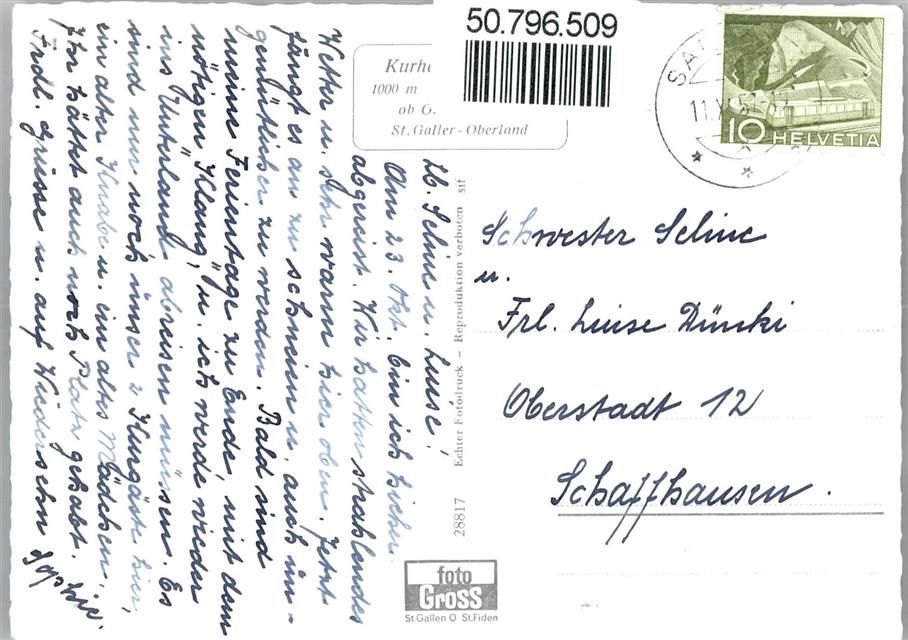 50.796.509
Kurh
1000 m
ob G.
St. Galler-Oberland
SA
11.X
10 HELVETIA
lb. Seline u. Luise!
Am 23. Okt. bin ich hieher
abgereist. Wir hatten strahlendes
Wetter u. sehr warm hier oben. Jetzt
fängt es an zu schneien u. auch un-
gemütlicher zu werden. Bald sind
meine Ferientage zu Ende, mit dem
nötigen Klang, u. ich werde wieder
ins Unterland abreisen müsen. Es
sind nur noch unser 2 Kurgäste hier,
ein alter Knabe u. ein altes Mädchen.
Ihr hättet auch noch Platz gehabt.
Frdl. grüsse u. auf Wiedersehn Sophie.
Echter Fotodruck – Reproduktion verboten sif
28817
foto
Gross
St.Gallen O St.Fiden
Schwester Seline
u.
Frl. Luise Dünki
Oberstadt 12
Schaffhausen.